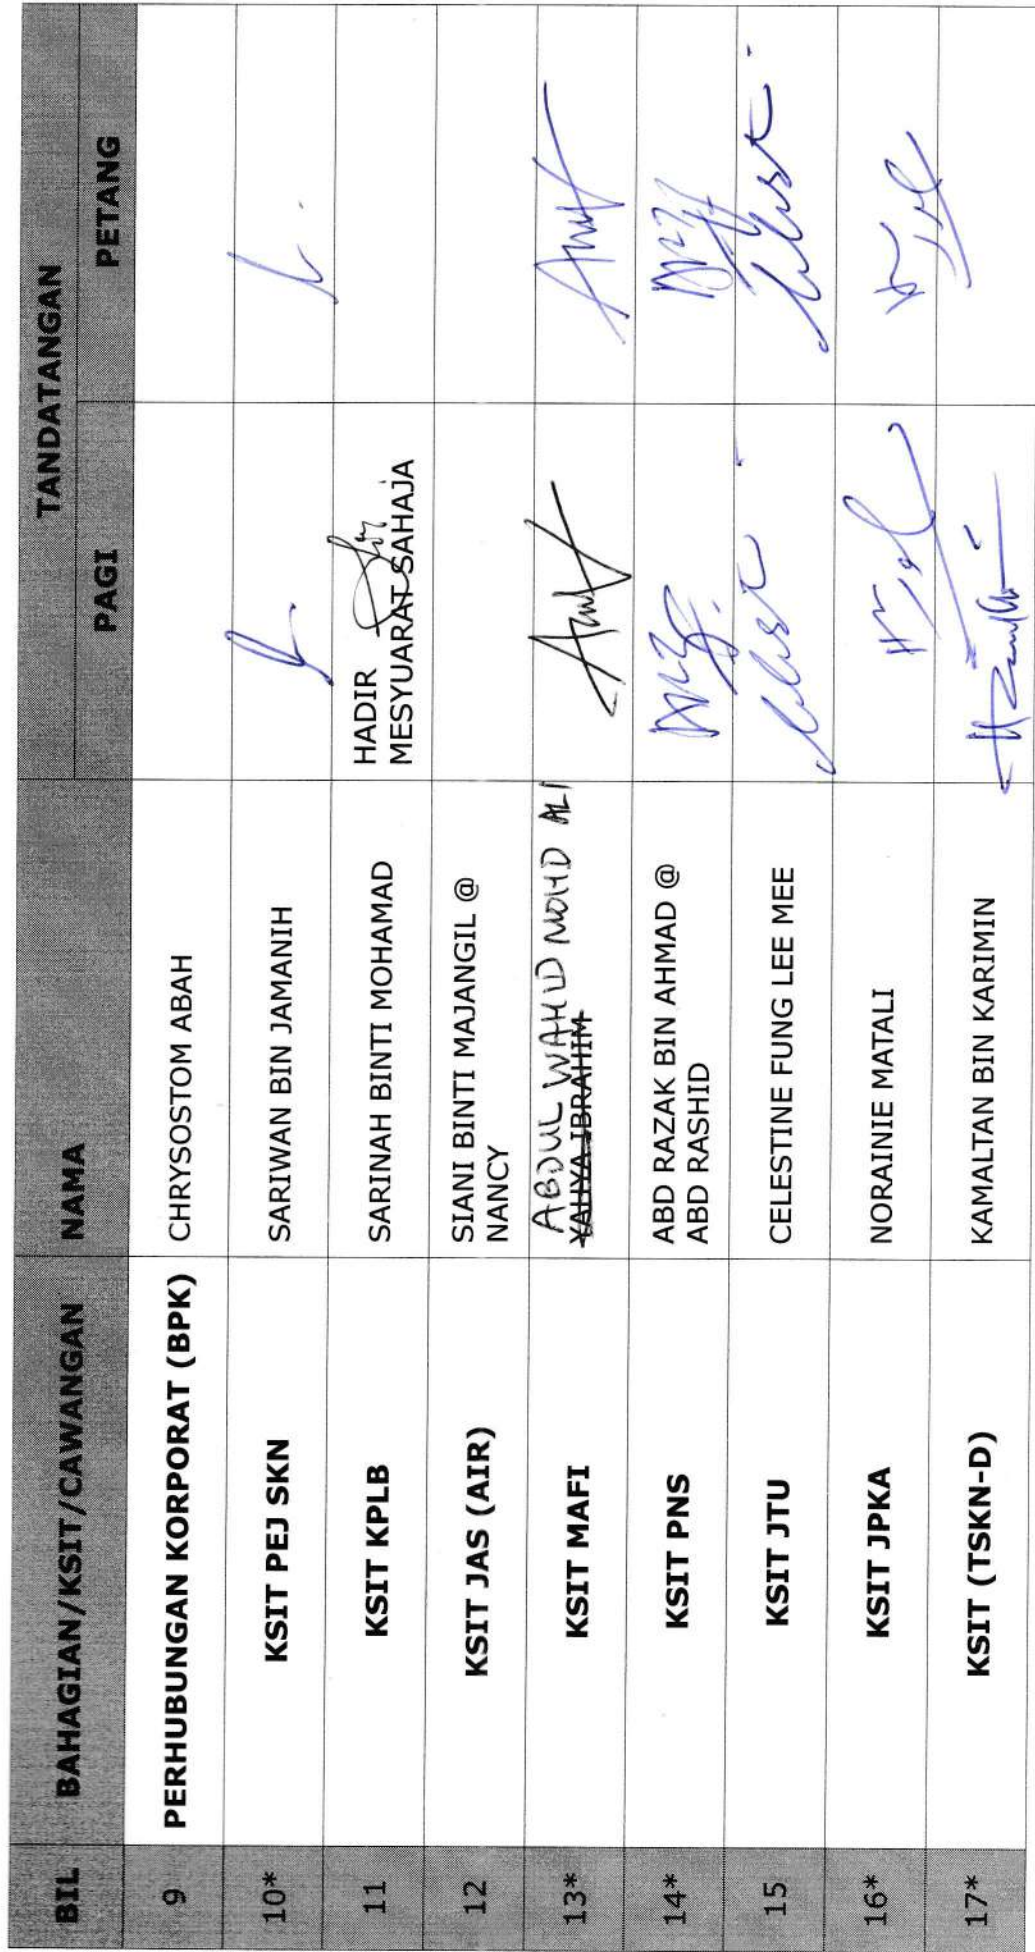 BIL BAHAGIAN/KSIT/CAWANGAN NAMA TANDATANGAN
PAGI PETANG
9 PERHUBUNGAN KORPORAT (BPK) CHRYSOSTOM ABAH
10* KSIT PEJ SKN SARIWAN BIN JAMANIH
11 KSIT KPLB SARINAH BINTI MOHAMAD HADIR
MESYUARAT SAHAJA
12 KSIT JAS (AIR) SIANI BINTI MAJANGIL @
NANCY
ABDUL WAHID MOHD ALI
13* KSIT MAFI YAHYA IBRAHIM
14* KSIT PNS ABD RAZAK BIN AHMAD @
ABD RASHID
15 KSIT JTU CELESTINE FUNG LEE MEE
16* KSIT JPKA NORAINIE MATALI
17* KSIT (TSKN-D) KAMALTAN BIN KARIMIN